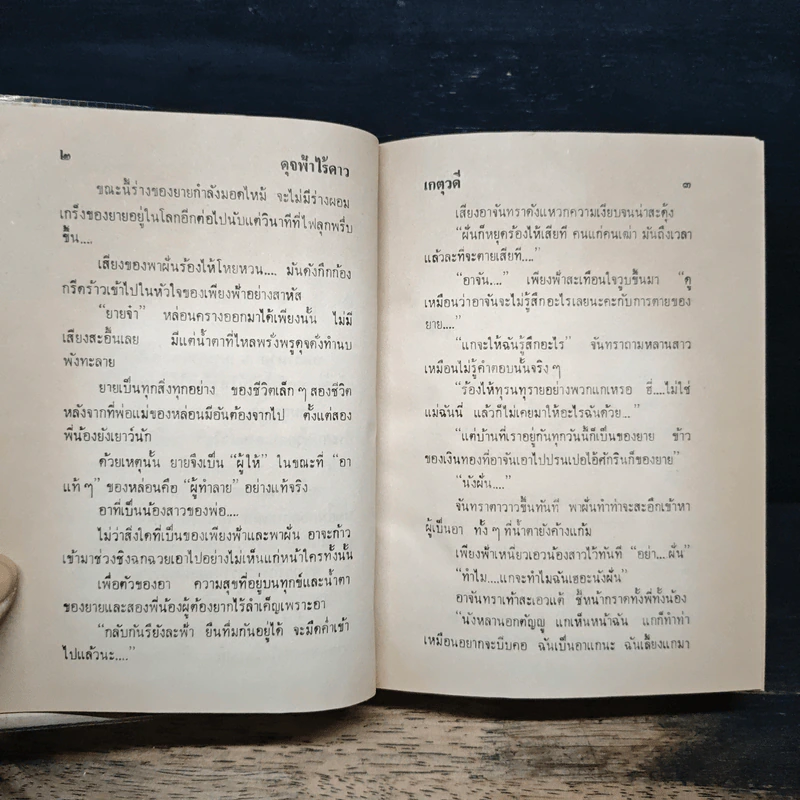 ๒
ดุจฟ้าไร้ดาว
ขณะนี้ร่างของยายกำลังมอดไหม้ จะไม่มีร่างผอม
เกร็งของยายอยู่ในโลกอีกต่อไปนับแต่วินาทีที่ไฟลุกพรึ่บ
ขึ้น....
เสียงของพาฝันร้องไห้โหยหวน.... มันดังกึกก้อง
กรีดร้าวเข้าไปในหัวใจของเพียงฟ้าอย่างสาหัส
“ยายจ๋า” หล่อนครางออกมาได้เพียงนั้น ไม่มี
เสียงสะอื้นเลย มีแต่น้ำตาที่ไหลพรั่งพรูดุจดั่งทำนบ
พังทะลาย
ยายเป็นทุกสิ่งทุกอย่าง ของชีวิตเล็ก ๆ สองชีวิต
หลังจากที่พ่อแม่ของหล่อนมีอันต้องจากไป ตั้งแต่สอง
พี่น้องยังเยาว์นัก
ด้วยเหตุนั้น ยายจึงเป็น “ผู้ให้” ในขณะที่ “อา
แท้ ๆ” ของหล่อนคือ “ผู้ทำลาย” อย่างแท้จริง
อาที่เป็นน้องสาวของพ่อ....
ไม่ว่าสิ่งใดที่เป็นของเพียงฟ้าและพาฝัน อาจะก้าว
เข้ามาช่วงชิงฉกฉวยเอาไปอย่างไม่เห็นแก่หน้าใครทั้งนั้น
เพื่อตัวของอา ความสุขที่อยู่บนทุกข์และน้ำตา
ของยายและสองพี่น้องผู้ต้องยากไร้ลำเค็ญเพราะอา
“กลับกันรึยังละฟ้า ยืนทึ่มกันอยู่ได้ จะมืดค่ำเข้า
ไปแล้วนะ....”
เกตุวดี
๓
เสียงอาจันทราดังแหวกความเงียบจนน่าสะดุ้ง
“ฝันก็หยุดร้องไห้เสียที คนแก่คนเฒ่า มันถึงเวลา
แล้วละที่จะตายเสียที....”
“อาจัน....” เพียงฟ้าสะเทือนใจวูบขึ้นมา “ดู
เหมือนว่าอาจันจะไม่รู้สึกอะไรเลยนะคะกับการตายของ
ยาย....”
“แกจะให้ฉันรู้สึกอะไร” จันทราถามหลานสาว
เหมือนไม่รู้คำตอบนั้นจริง ๆ
“ร้องไห้ทุรนทุรายอย่างพวกแกเหรอ ฮึ....ไม่ใช่
แม่ฉันนี่ แล้วก็ไม่เคยมาให้อะไรฉันด้วย...”
“แต่บ้านที่เราอยู่กันทุกวันนี้ก็เป็นของยาย ข้าว
ของเงินทองที่อาจันเอาไปปรนเปอไอ้ศักรินก็ของยาย”
“นังฝัน....”
จันทราตาวาวขึ้นทันที พาฝันทำท่าจะสะอึกเข้าหา
ผู้เป็นอา ทั้ง ๆ ที่น้ำตายังค้างแก้ม
เพียงฟ้าเหนี่ยวเอวน้องสาวไว้ทันที “อย่า... ฝัน”
“ทำไม....แกจะทำไมฉันเธอะนังฝัน”
อาจันทราเท้าสะเอวแต้ ชี้หน้ากราดทั้งพี่ทั้งน้อง
“นังหลานอกตัญญู แกเห็นหน้าฉัน แกก็ทำท่า
เหมือนอยากจะบีบคอ ฉันเป็นอาแกนะ ฉันเลี้ยงแกมา